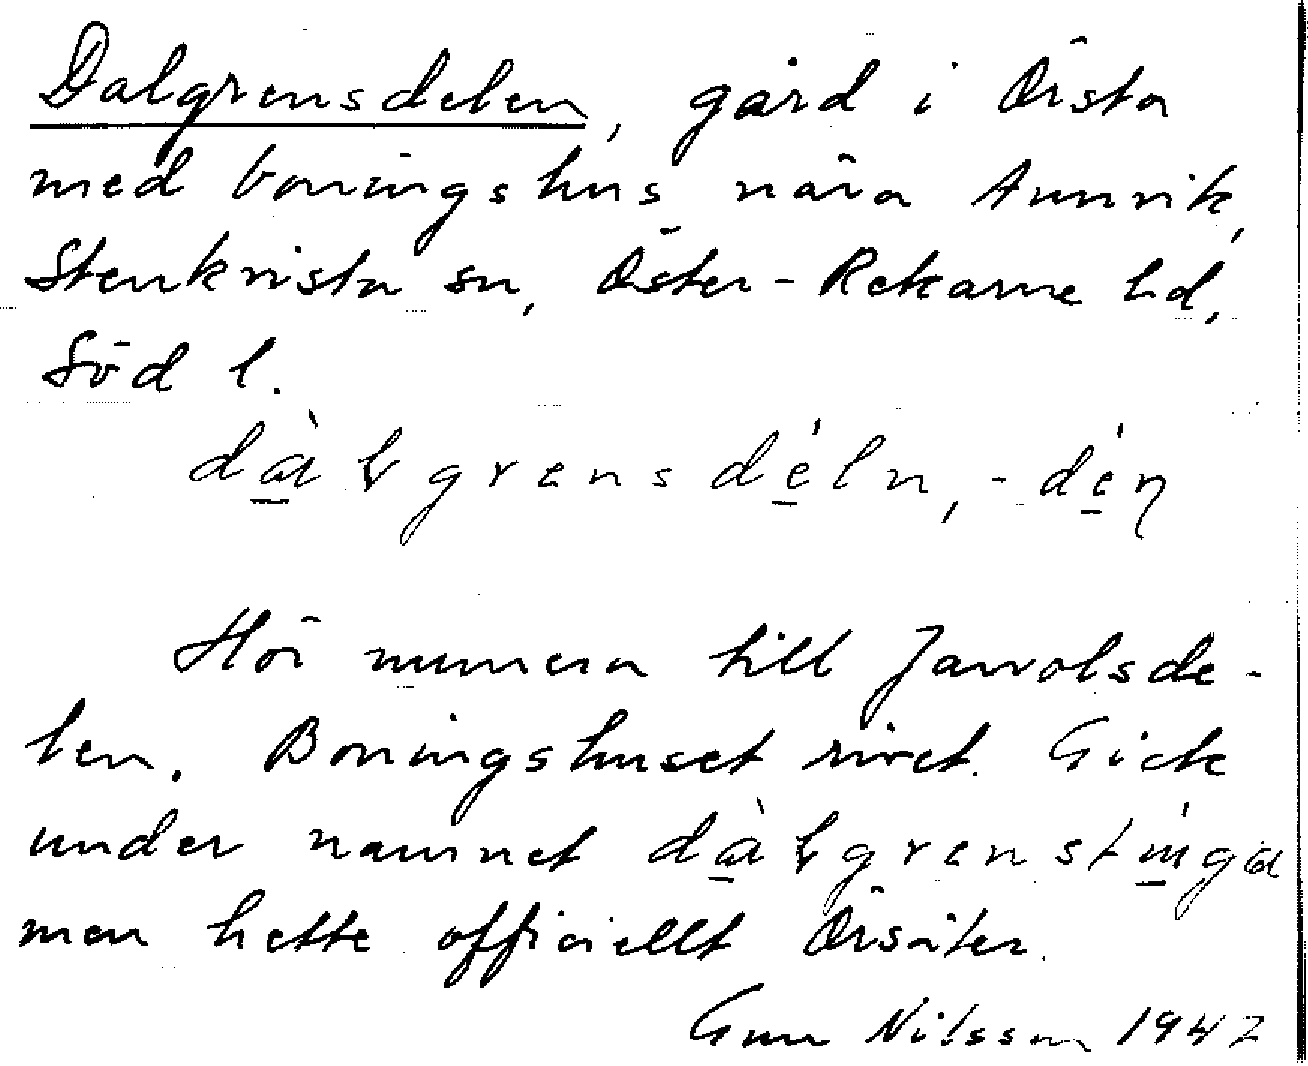 Dalgrensdelen, gård i Örsta
med boningshus nära Annvik,
Stenkvista sn, Öster-Rekarne hd,
Söd l.
dàlgrensdéln, -dén
Hör numera till Janolsde-
len. Boningshuset rivet. Gick
under namnet dàlgrenst
men hette officiellt Örsäter.
Gun Nilsson 1942